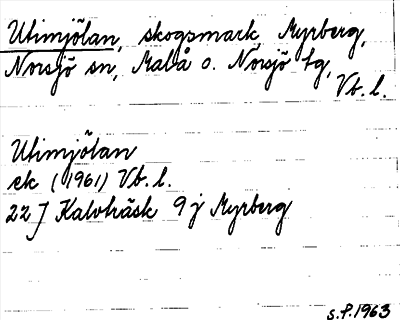 Utimjölan, skogsmark Myrberg,
Norsjö sn, Malå o. Norsjö tg,
Vb. l.
Utimjölan
ek (1961) Vb. l.
22 J Kalvträsk 9 j Myrberg
s.f. 1963